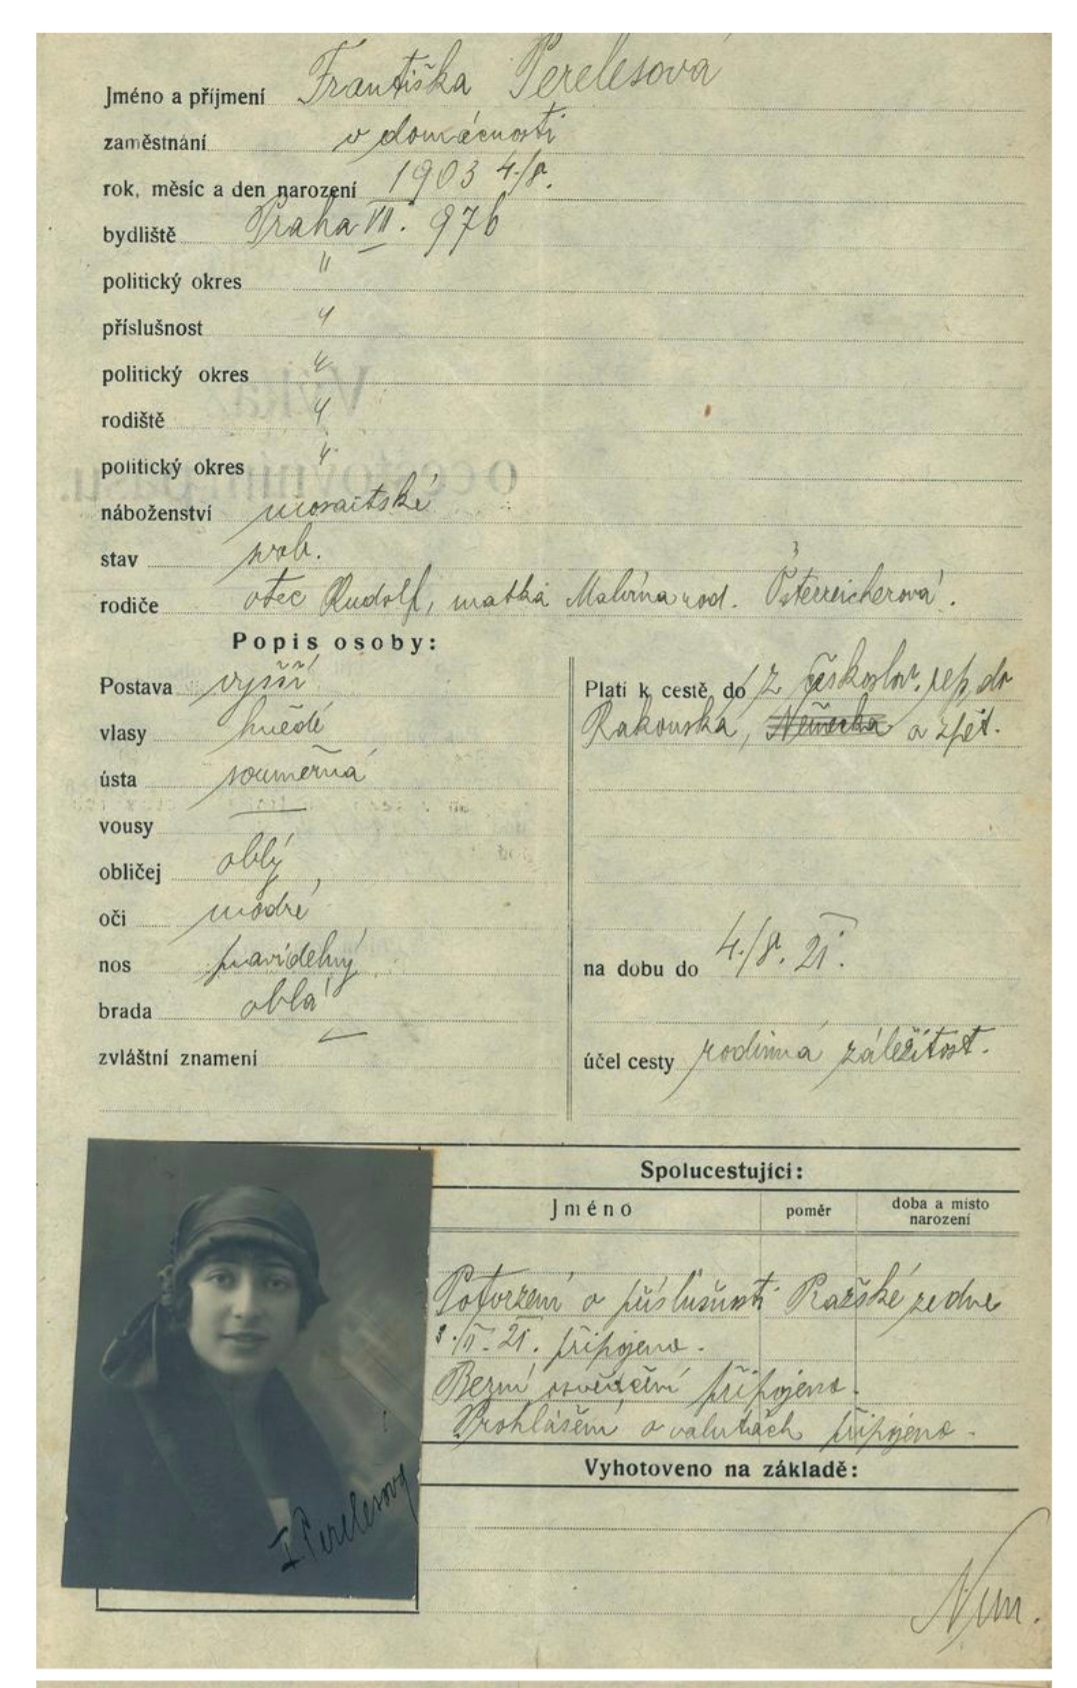 Jméno a příjmení Františka Perelesová
zaměstnání v domácnosti
rok, měsíc a den narození 1903 4./8.
bydliště Praha VII. 976
politický okres "
příslušnost "
politický okres "
rodiště "
politický okres "
náboženství mosaitské
stav svob.
rodiče otec Rudolf, matka Malvina rod. Österreicherová.
Popis osoby:
Postava vyšší
vlasy hnědé
ústa souměrná
vousy —
obličej oblý
oči modré
nos pravidelný
brada oblá
zvláštní znamení —
Platí k cestě do z českoslov. rep. do
Rakouska, Německa a zpět.
na dobu do 4./8. 21.
účel cesty rodinná záležitost.
Spolucestující:
Jméno poměr doba a místo
narození
Potvrzení o příslušnosti Pražské ze dne
21. připojeno.
Berní osvědčení připojeno.
Prohlášení o valutách připojeno.
Vyhotoveno na základě:
Perelesová